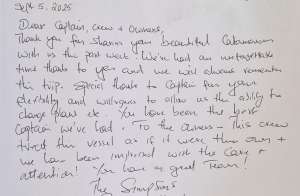 Sept 5. 2025
Dear Captain, crew & owners,
Thank you for sharing your beautiful Catamaran
with us the past week. We've had an unforgettable
time thanks to you and we will always remember
this trip. Special thanks to Captain for your
flexibility and willingness to allow us the ability to
change plans etc. You have been the best
Captain we've had. To the owners - This crew
the vessel as if it were their own &
we have been impressed with the care &
attention! You have a great Team!
The Simpsons